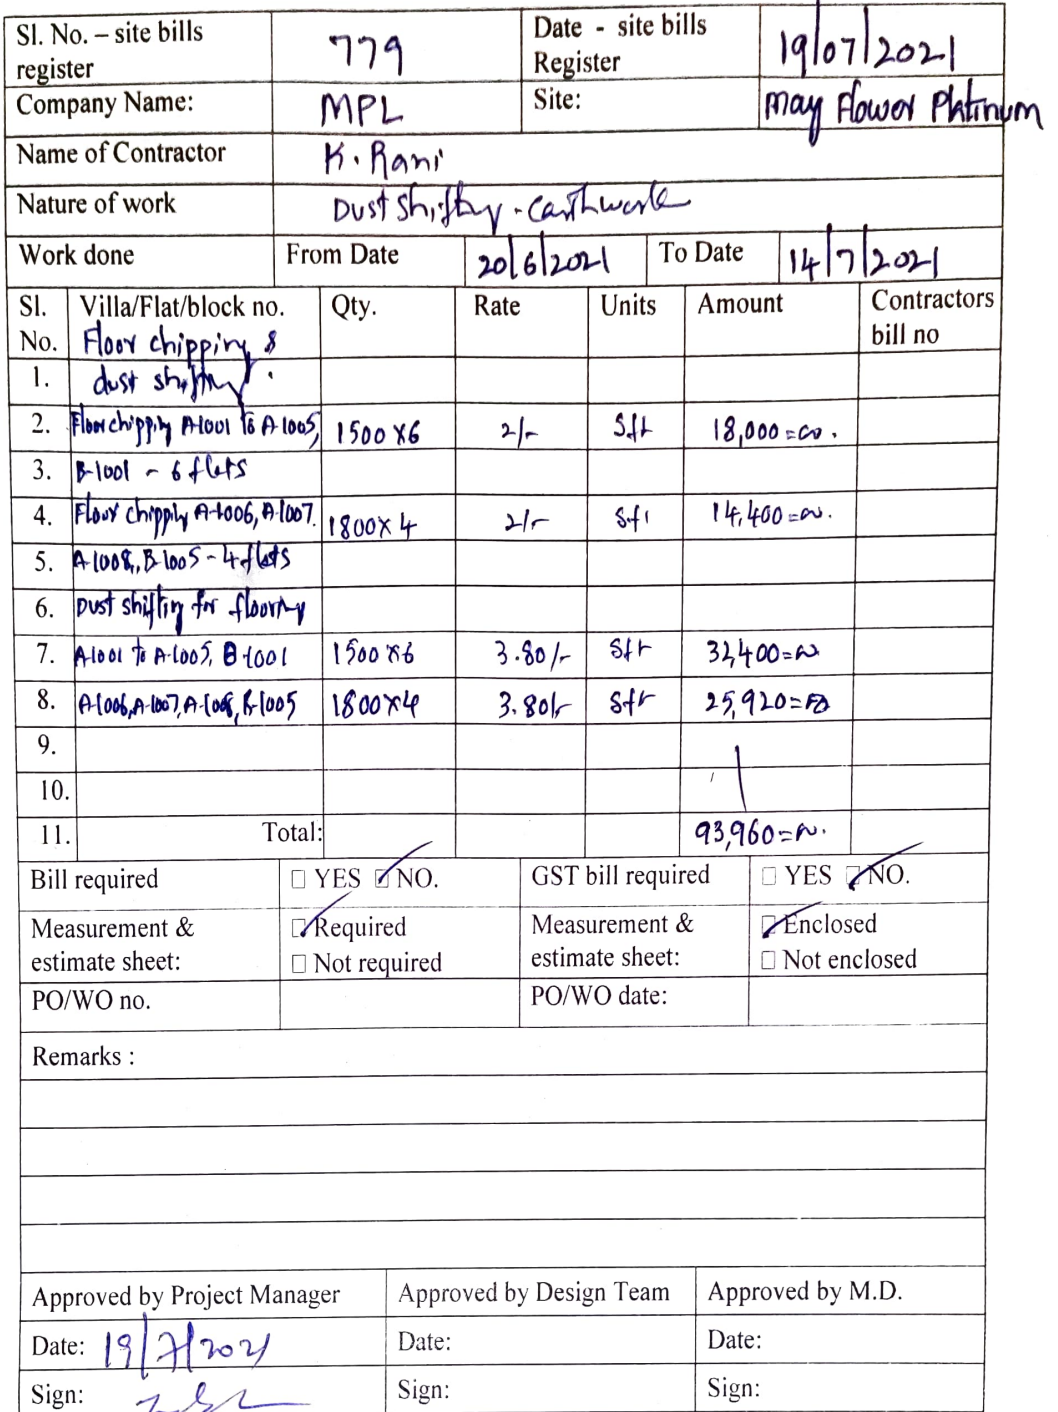 Sl. No. – site bills register 779 Date - site bills Register 19/07/2021
Company Name: MPL Site: May Flower Platinum
Name of Contractor K. Rani
Nature of work Dust shifting - Earthwork
Work done From Date 20/6/2021 To Date 14/7/2021
Sl. No. Villa/Flat/block no. Qty. Rate Units Amount Contractors bill no
Floor chipping &
1. dust shifting.
2. Floor chipping A-1001 to A-1005, 1500 X6 2/- Sft 18,000=00.
3. B-1001 - 6 flats
4. Floor chipping A-1006, A-1007. 1800X 4 2/- Sft 14,400=00.
5. A-1008, B-1005 - 4 flats
6. Dust shifting for flooring
7. A-1001 to A-1005, B-1001 1500 X6 3.80/- Sft 32,400=00
8. A-1006, A-1007, A-1008, B-1005 1800X4 3.80/- Sft 25,920=00
9.
10.
11. Total: 93,960=00.
Bill required □ YES ☑ NO. GST bill required □ YES ☑ NO.
Measurement & estimate sheet: ☑ Required □ Not required Measurement & estimate sheet: ☑ Enclosed □ Not enclosed
PO/WO no. PO/WO date:
Remarks :
Approved by Project Manager Approved by Design Team Approved by M.D.
Date: 19/7/2021 Date: Date:
Sign: Sign: Sign: